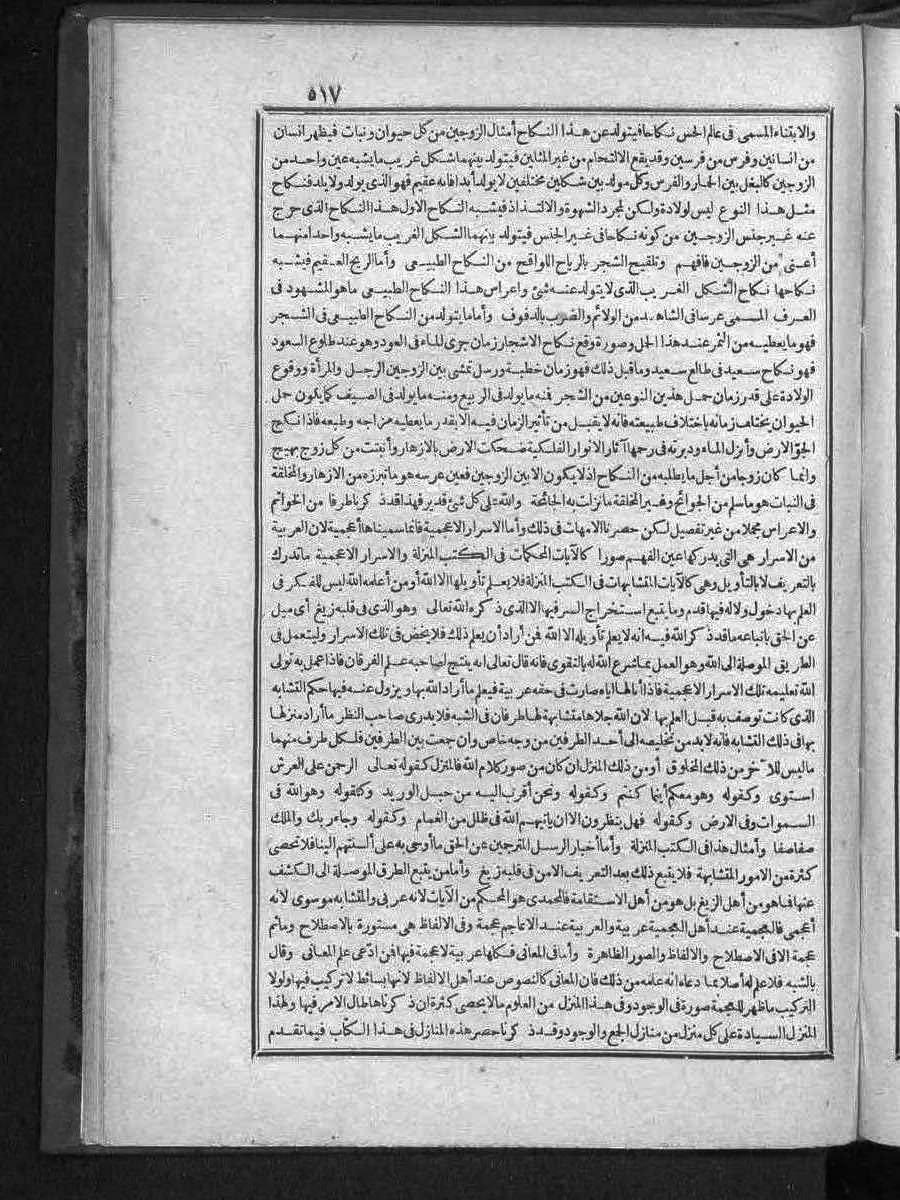 ٥١٧
والابتناء المسمى فى عالم الحس نكاحا فيتولد عن هذا النكاح أمثال الزوجين من كل حيوان ونبات فيظهر انسان
من انسانين وفرس من فرسين وقد يقع الالتحام من غير المثلين فيتولد بينهما شكل غريب ما يشبه عين واحد من
الزوجين كالبغل بين الحمار والفرس وكل مولد بين شكلين مختلفين لا يولد أبدا فانه عقيم فهو الذى يولد ولا يلد فنكاح
مثل هذا النوع ليس لولادة ولكن لمجرد الشهوة والالتذاذ فيشبه النكاح الاول هذا النكاح الذى خرج
عنه غير جنس الزوجين من كونه نكاحا فى غير الجنس فيتولد بينهما الشكل الغريب ما يشبه واحدا منهما
أعنى من الزوجين فافهم وتلقيح الشجر بالرياح اللواقح من النكاح الطبيعى وأما الريح العقيم فيشبه
نكاحها نكاح الشكل الغريب الذى لا يتولد عنه شئ واعراس هذا النكاح الطبيعى ما هو المشهود فى
العرف المسمى عرسا فى الشاهد من الولائم والضرب بالدفوف وأما ما يتولد من النكاح الطبيعى فى الشجر
فهو ما يعطيه من الثمر عند هذا الحل وصورة وقع نكاح الاشجار زمان جرى الماء فى العود وهو عند طلوع السعود
فهو نكاح سعيد فى طالع سعيد وما قبل ذلك فهو زمان خطبة ورسل تمشى بين الزوجين الرجل والمرأة ووقوع
الولادة على قدر زمان حمل هذين النوعين من الشجر فنه ما يولد فى الربيع ومنه ما يولد فى الصيف كما يكون حل
الحيوان يختلف زمانه باختلاف طبيعته فانه لا يقبل من تأثير الزمان فيه الا بقدر ما يعطيه مزاجه وطبعه فاذا نكح
الجو الارض وأنزل الماء ودبرته فى رحمها آثار الانوار الفلكية ضحكت الارض بالازهار وأنبتت من كل زوج بهيج
وانما كان زوجا من أجل ما يطلبه من النكاح اذ لا يكون الا بين الزوجين فعين عرسه هو ما تبرزه من الازهار والمخلقة
فى النبات هو ما سلم من الجوائح وغير المخلقة ما نزلت به الجائحة والله على كل شئ قدير فهذا قد ذكرنا طرفا من الخواتم
والاعراس مجملا من غير تفصيل لكن حصرنا الامهات فى ذلك وأما الاسرار الاعجمية فانما سميناها أعجمية لان العربية
من الاسرار هى التى يدركها عين الفهم صورا كالآيات المحكمات فى الكتب المنزلة والاسرار الاعجمية ما تدرك
بالتعريف لا بالتأويل وهى كالآيات المتشابهات فى الكتب المنزلة فلا يعلم تأويلها الا الله أو من أعلمه الله ليس للفكر فى
العلم بها دخول ولا له فيها قدم وما يتبع استخراج السر فيها الا الذى ذكره الله تعالى وهو الذى فى قلبه زيغ أى ميل
عن الحق باتباعه ما قد ذكر الله فيه انه لا يعلم تأويله الا الله فمن أراد أن يعلم ذلك فلا يخض فى تلك الاسرار وليتعمل فى
الطريق الموصلة الى الله وهو العمل بما شرع الله له بالتقوى فانه قال تعالى انه ينتج لصاحبه علم الفرقان فاذا عمل به تولى
الله تعليمه تلك الاسرار الاعجمية فاذا أنالها اياه صارت فى حقه عربية فيعلم ما أراد الله بها ويزول عنه فيها حكم التشابه
الذى كانت توصف به قبل العلم بها لان الله جلاها متشابهة لها طرفان فى الشبه فلا يدرى صاحب النظر ما أراد منزلها
بها فى ذلك التشابه فانه لا بد من تخليصه الى أحد الطرفين من وجه خاص وان جمعت بين الطرفين فلكل طرف منهما
ما ليس للآخر من ذلك المخلوق أو من ذلك المنزل ان كان من صور كلام الله فالمنزل كقوله تعالى الرحمن على العرش
استوى وكقوله وهو معكم أينما كنتم وكقوله ونحن أقرب اليه من حبل الوريد وكقوله وهو الله فى
السموات وفى الارض وكقوله فهل ينظرون الا ان يأتيهم الله فى ظلل من الغمام وكقوله وجاء ربك والملك
صفا صفا وأمثال هذا فى الكتب المنزلة وأما أخبار الرسل المترجمين عن الحق ما أوحى به على ألسنتهم الينا فلا تحصى
كثرة من الامور المتشابهة فلا يتبع ذلك بعد التعريف الا من فى قلبه زيغ وأما من يتبع الطرق الموصلة الى الكشف
عنها فما هو من أهل الزيغ بل هو من أهل الاستقامة فالمحمدى هو المحكم من الآيات لانه عربى والمتشابه موسوى لانه
أعجمى فالعجمية عند أهل العجمية عربية والعربية عند الاعاجم عجمة وفى الالفاظ هى مستورة بالاصطلاح وما ثم
عجمة الا فى الاصطلاح والالفاظ والصور الظاهرة وأما فى المعانى فكلها عربية لا عجمة فيها فمن ادّعى علم المعانى وقال
بالشبه فلا علم له أصلا بما ادعاه انه علمه من ذلك فان المعانى كالنصوص عند أهل الالفاظ لانها بسائط لا تركيب فيها ولولا
التركيب ما ظهر للعجمة صورة فى الوجود وفى هذا المنزل من العلوم ما لا يحصى كثرة ان ذكرناها طال الامر فيها ولهذا
المنزل السيادة على كل منزل من منازل الجمع والوجود وقد ذكرنا حصر هذه المنازل فى هذا الكتاب فيما تقدم